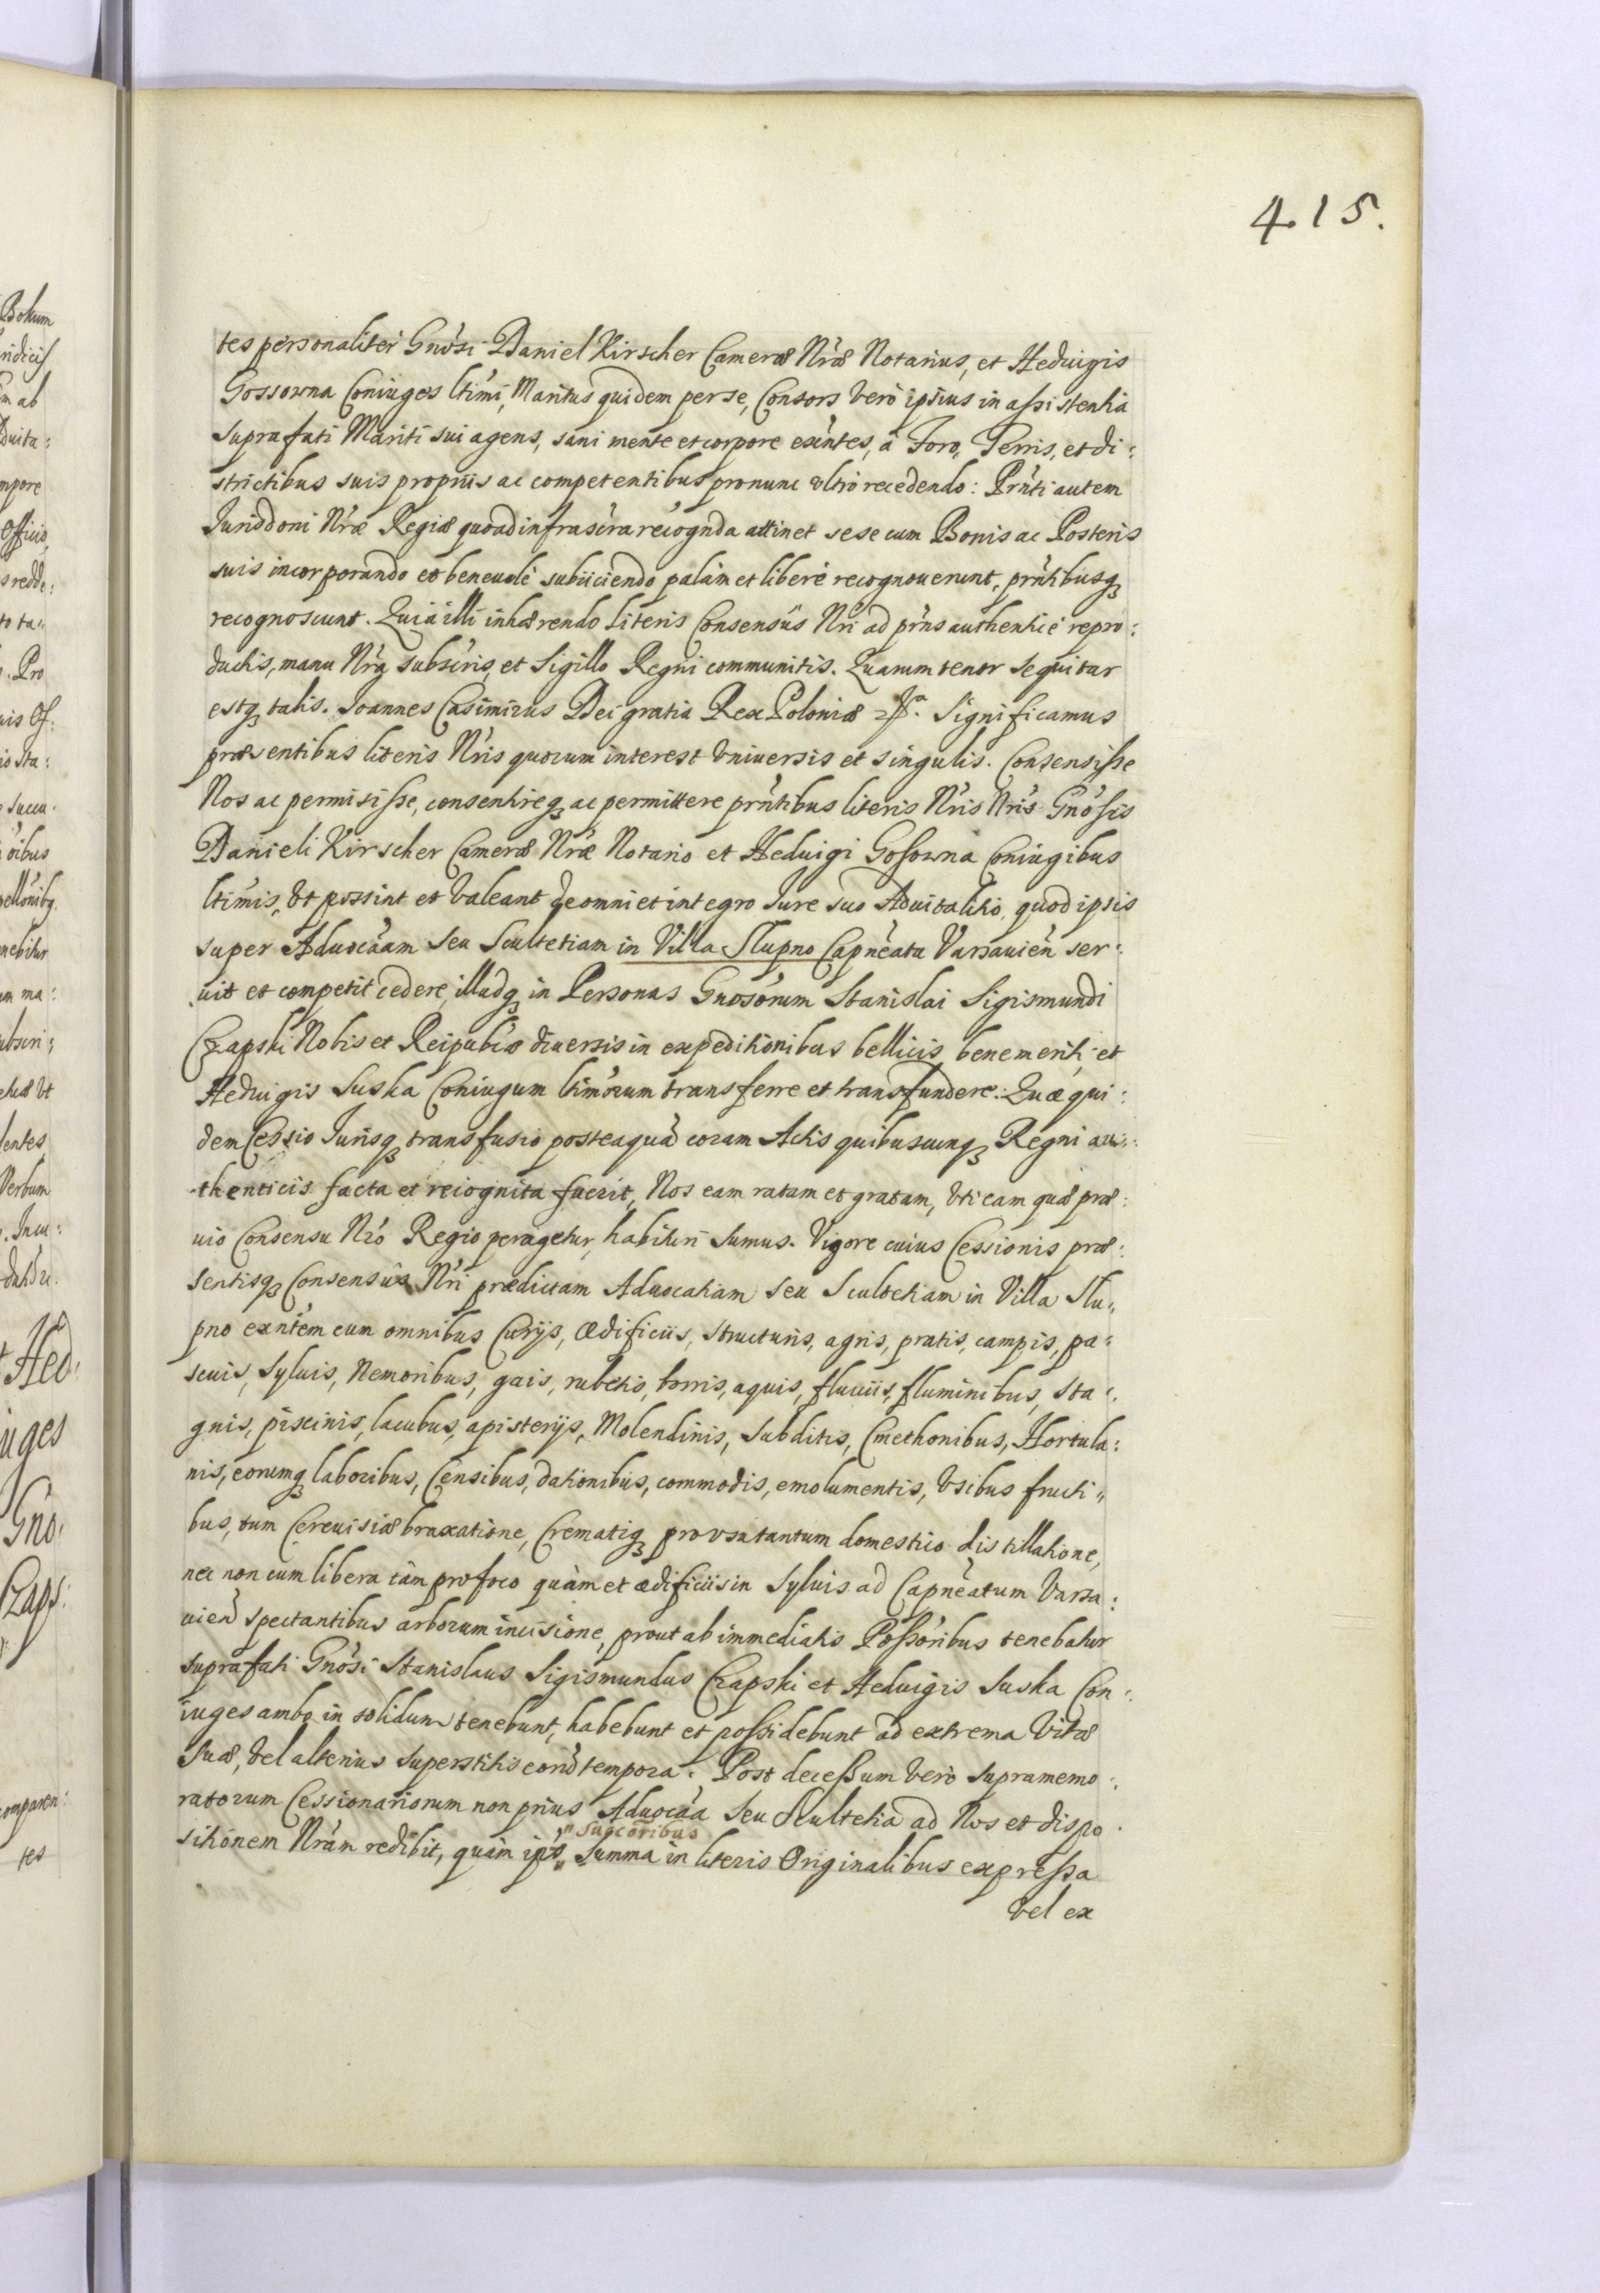 415.
tes personaliter Gnosi Daniel Kirscher Cameræ Nræ Notarius, et Heduigis
Gossowna Coniuges ltimi, Maritus quidem per se, Consors verò ipsius in assistentia
suprafati Mariti sui agens, sani mente et corpore exntes, à Foro, Terris, et di:
strictibus suis proprijs ac competentibus pro nunc vltrò recedendo: Prnti autem
Jurisdoni Nræ Regiæ quoad infrascra recognda attinet sese cum Bonis ac Posteris
suis incorporando et beneuolè subijciendo palàm et liberè recognouerunt, prntibusq
recognoscunt. Quia illi inhærendo literis Consensûs Nri ad prns authenticè repro:
ductis, manu Nra subscris, et Sigillo Regni communitis. Quarum tenor sequitur
estq talis. Joannes Casimirus Dei gratia Rex Poloniæ &. Significamus
præsentibus literis Nris quorum interest vniuersis et singulis. Consensisse
Nos ac permisisse, consentireq ac permittere prntibus literis Nris Nris Gnosis
Danieli Kirscher Cameræ Nræ Notario et Heduigi Gosowna Coniugibus
ltimis, vt possint et valeant de omni et integro Jure suo Aduitalitio, quod ipsis
super Aduocaam seu Scultetiam in Villa Slupno Capneatu Varsauien ser:
uit et competit cedere, illudq in Personas Gnosorum Stanislai Sigismundi
Czapski Nobis et Reipublæ diuersis in expeditionibus bellicis benemeriti, et
Heduigis Suska Coniugum ltimorum transferre et transfundere. Quæ qui:
dem Cessio Jurisq transfusio posteaquã coram Actis quibuscunq Regni au:
thenticis facta et recognita fuerit, Nos eam ratam et gratam, vti eam quæ præ:
uio Consensu Nro Regio peragetur, habituri sumus. Vigore cuius Cessionis præ:
sentisq Consensûs Nri prædictam Aduocatiam seu Scultetiam in Villa Slu„
pno exntem cum omnibus Curijs, ædificiis, structuris, agris, pratis, campis, pa:
scuis, syluis, Nemoribus, gais, rubetis, borris, aquis, fluuiis, fluminibus, sta:
gnis, piscinis, lacubus, apisterijs, Molendinis, Subditis, Cmethonibus, Hortula:
nis, eorumq laboribus, Censibus, dationibus, commodis, emolumentis, vsibus fructi„
bus, tum Cereuisiæ braxatione, Crematiq pro vsu tantum domestico distillatione,
nec non cum libera tàm pro foco quàm et ædificiis in Syluis ad Capneatum Varsa:
uien spectantibus arborum incisione, prout ab immediatis Possoribus tenebatur
suprafati Gnosi Stanislaus Sigismundus Czapski et Heduigis Suska Con:
iuges ambo in solidum tenebunt, habebunt et possidebunt ad extrema vitæ
suæ, vel alterius superstitis eorũ tempora. Post decessum verò supramemo:
ratorum Cessionariorum non prius Aduocaa seu Scultetia ad Nos et dispo
„ Succoribus
sitionem Nram redibit, quàm ipsõ „ Summa in literis Originalibus expressa
vel ex